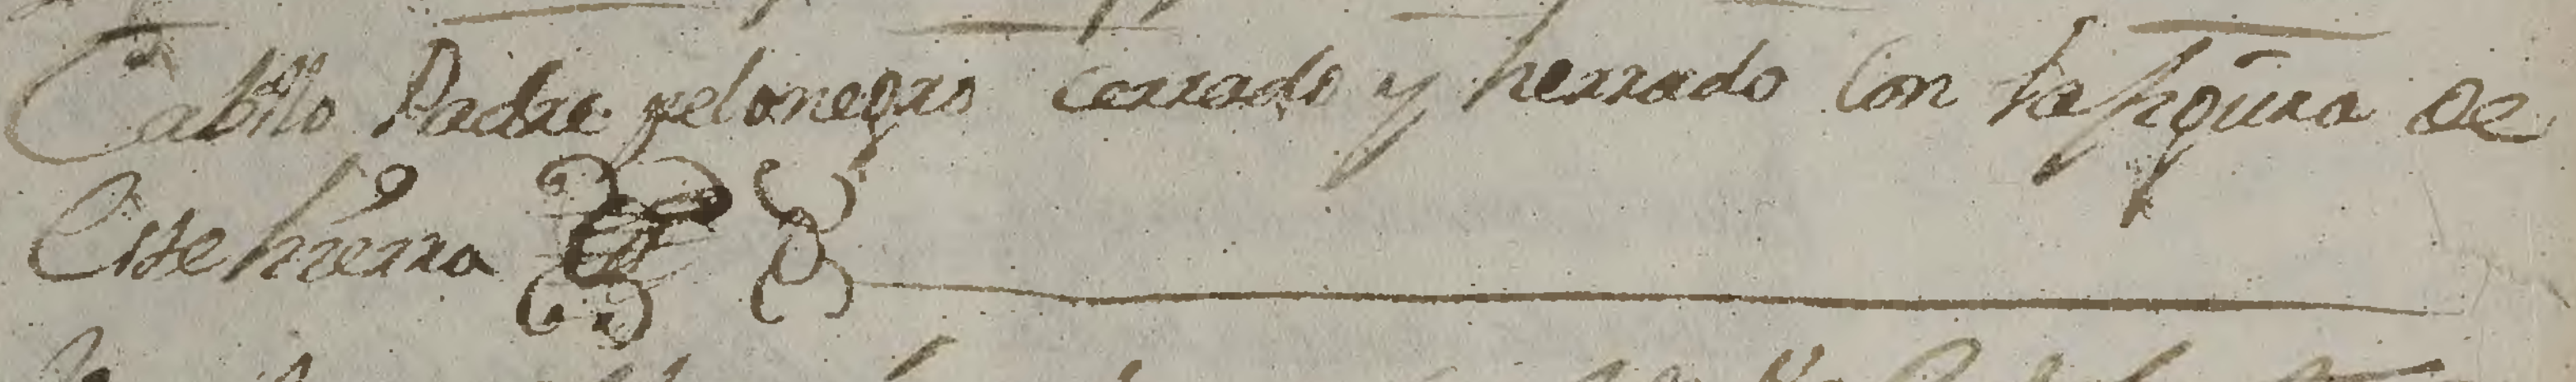 Caballo Padre pelonegro cerrado y herrado con la figura de
este hierro